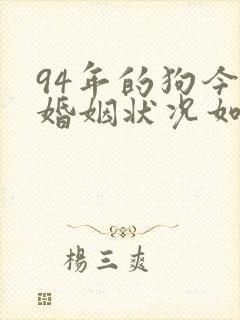 94年的狗今
婚姻状况如
楊三爽